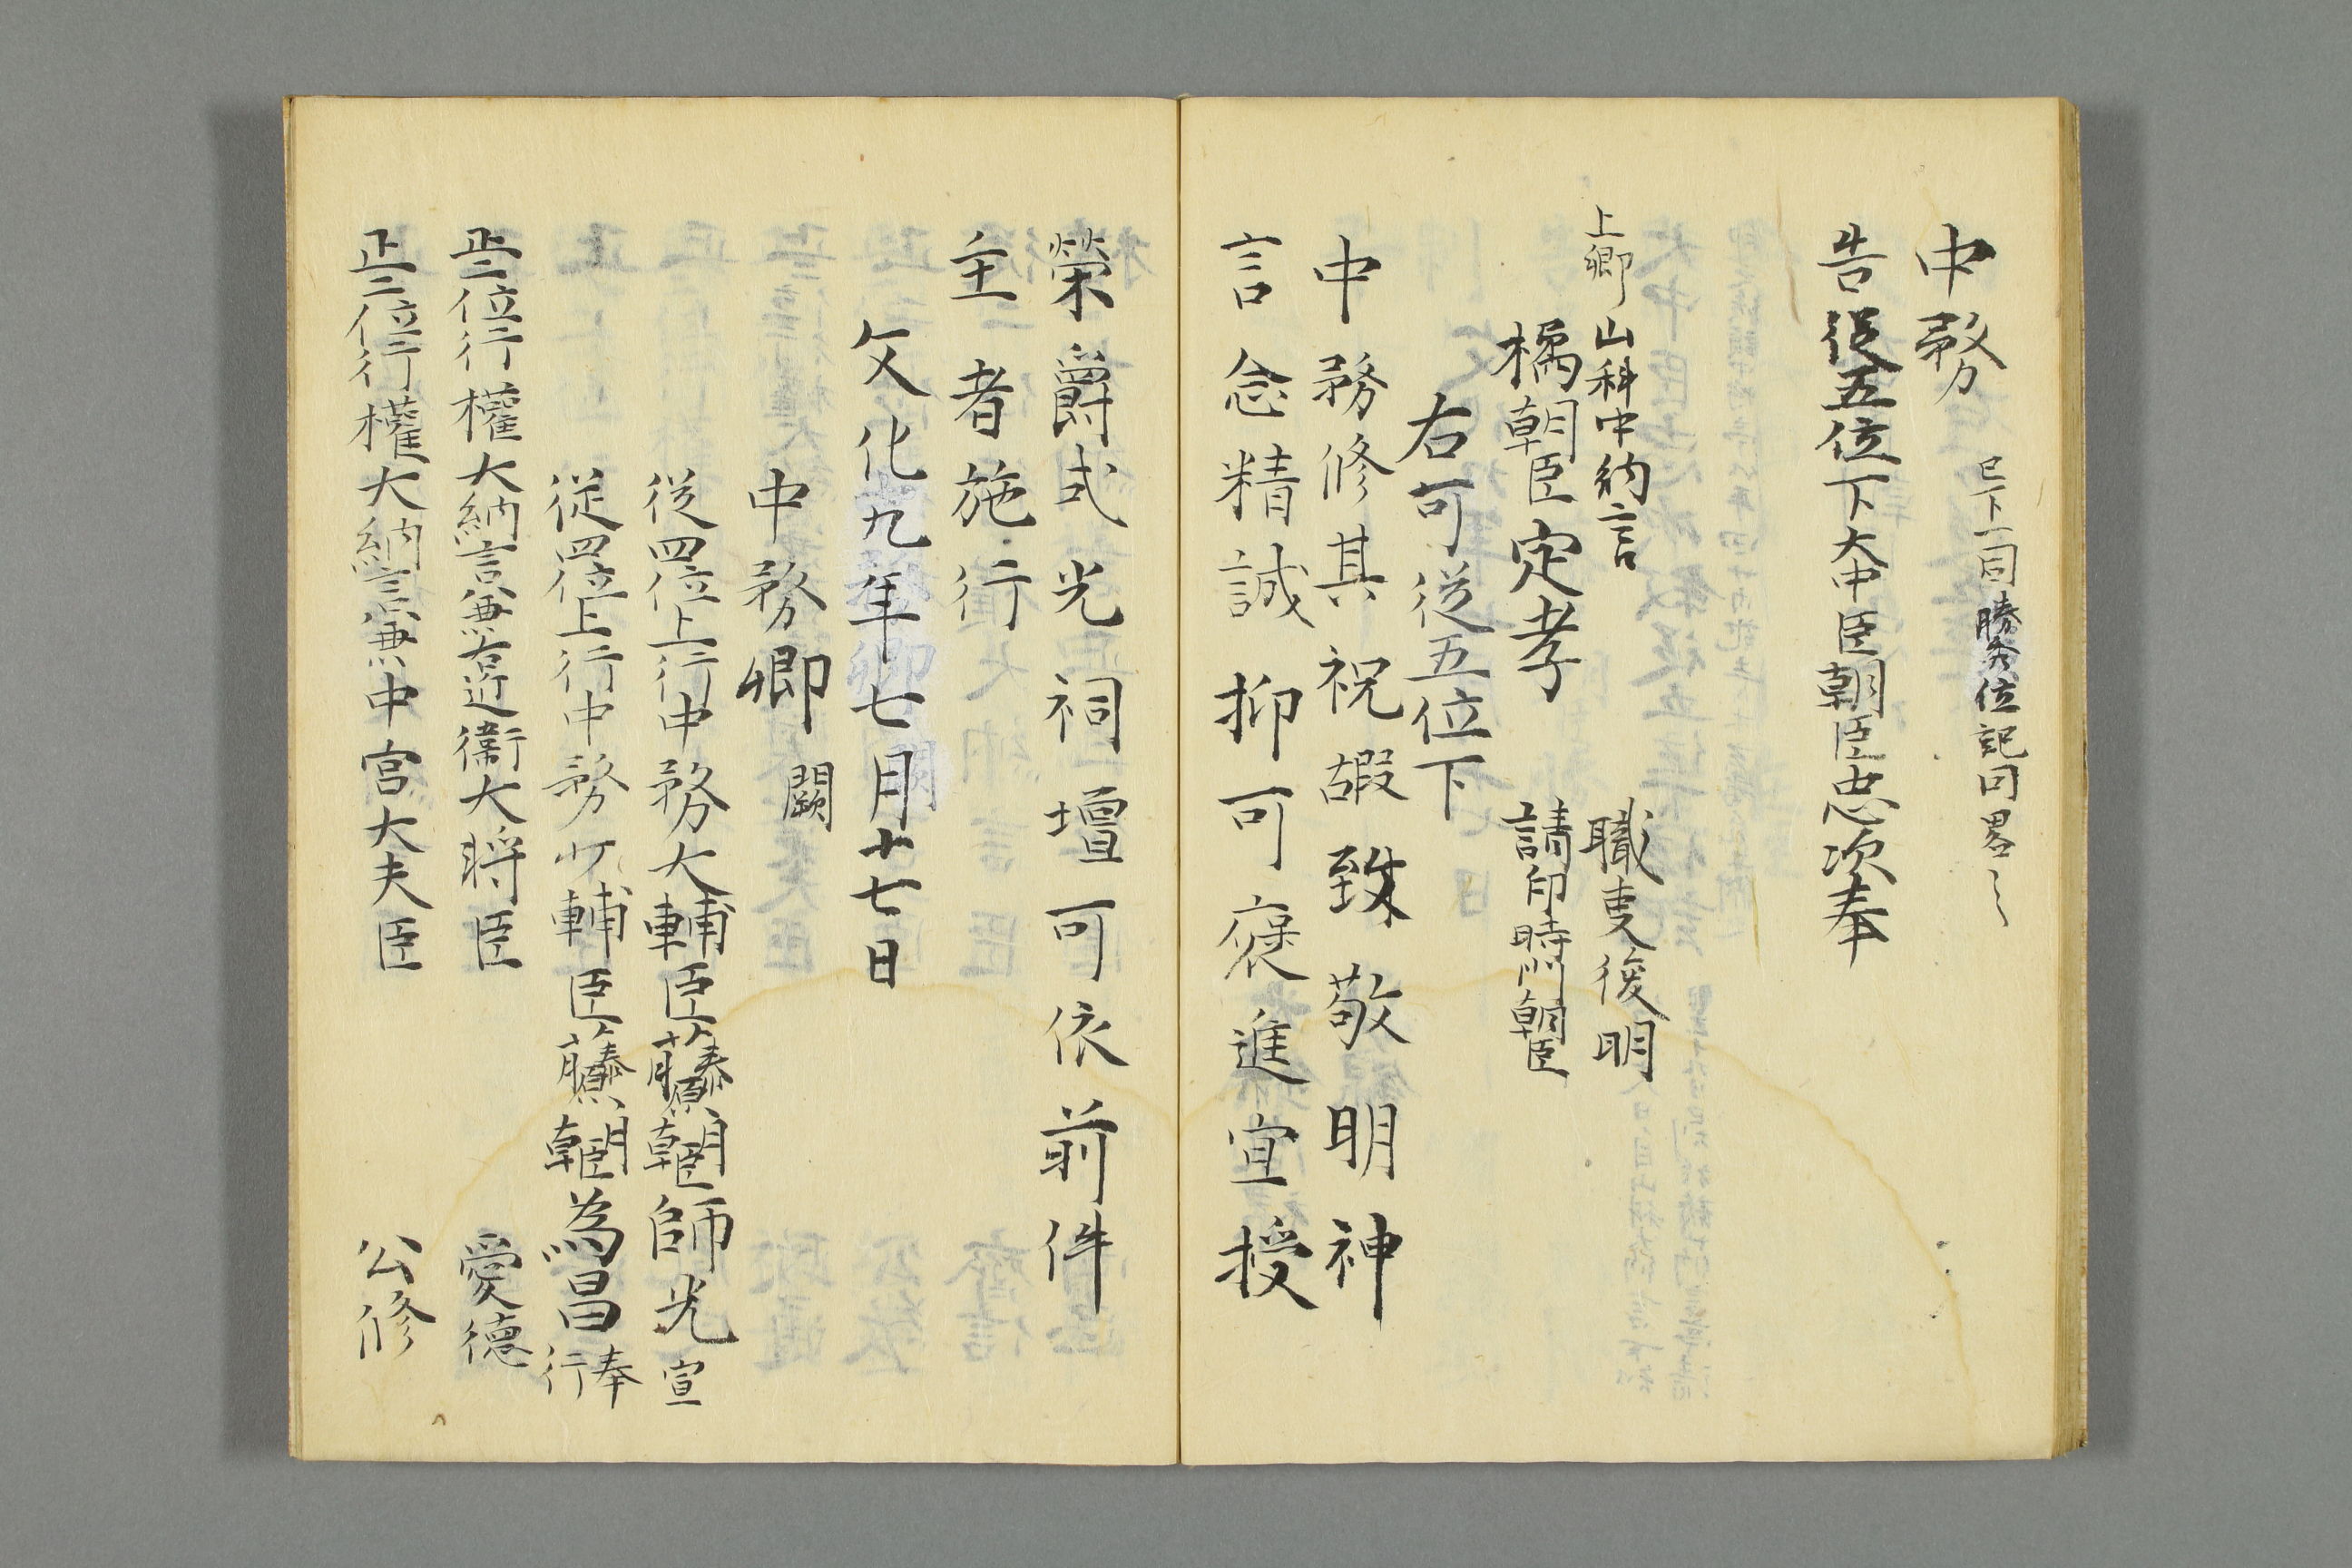 中務 已下同勝秀位記因畧之
告従五位下大中臣朝臣忠次奉
上卿山科中納言 職事俊明
橘朝臣定孝 請印時門朝臣
右可従五位下
中務修其祝嘏致敬明神
言念精誠抑可褒進宜授
榮爵式光祠壇可依前件
主者施行
文化九年七月十七日
中務卿 闕
従四位上行中務大輔臣藤原朝臣師光宣
従四位上行中務少輔臣藤原朝臣為昌奉行
正二位行權大納言兼右近衛大将臣 愛德
正二位行權大納言兼中宮大夫臣 公修